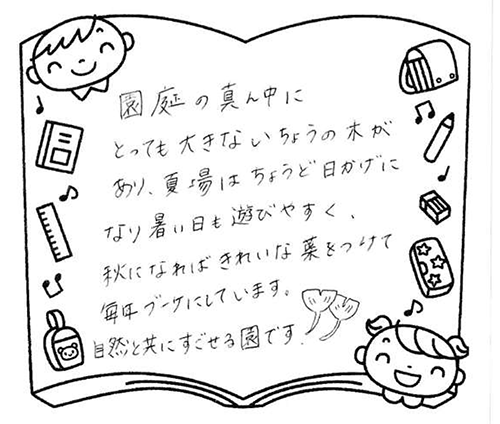 園庭の真ん中に
とっても大きないちょうの木が
あり、夏場はちょうど日かげに
なり暑い日も遊びやすく、
秋になればきれいな葉をつけて
毎年ブーケにしています。
自然と共にすごせる園です。